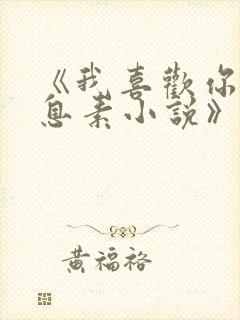 《我喜歡你
息素小説》
黄福裕